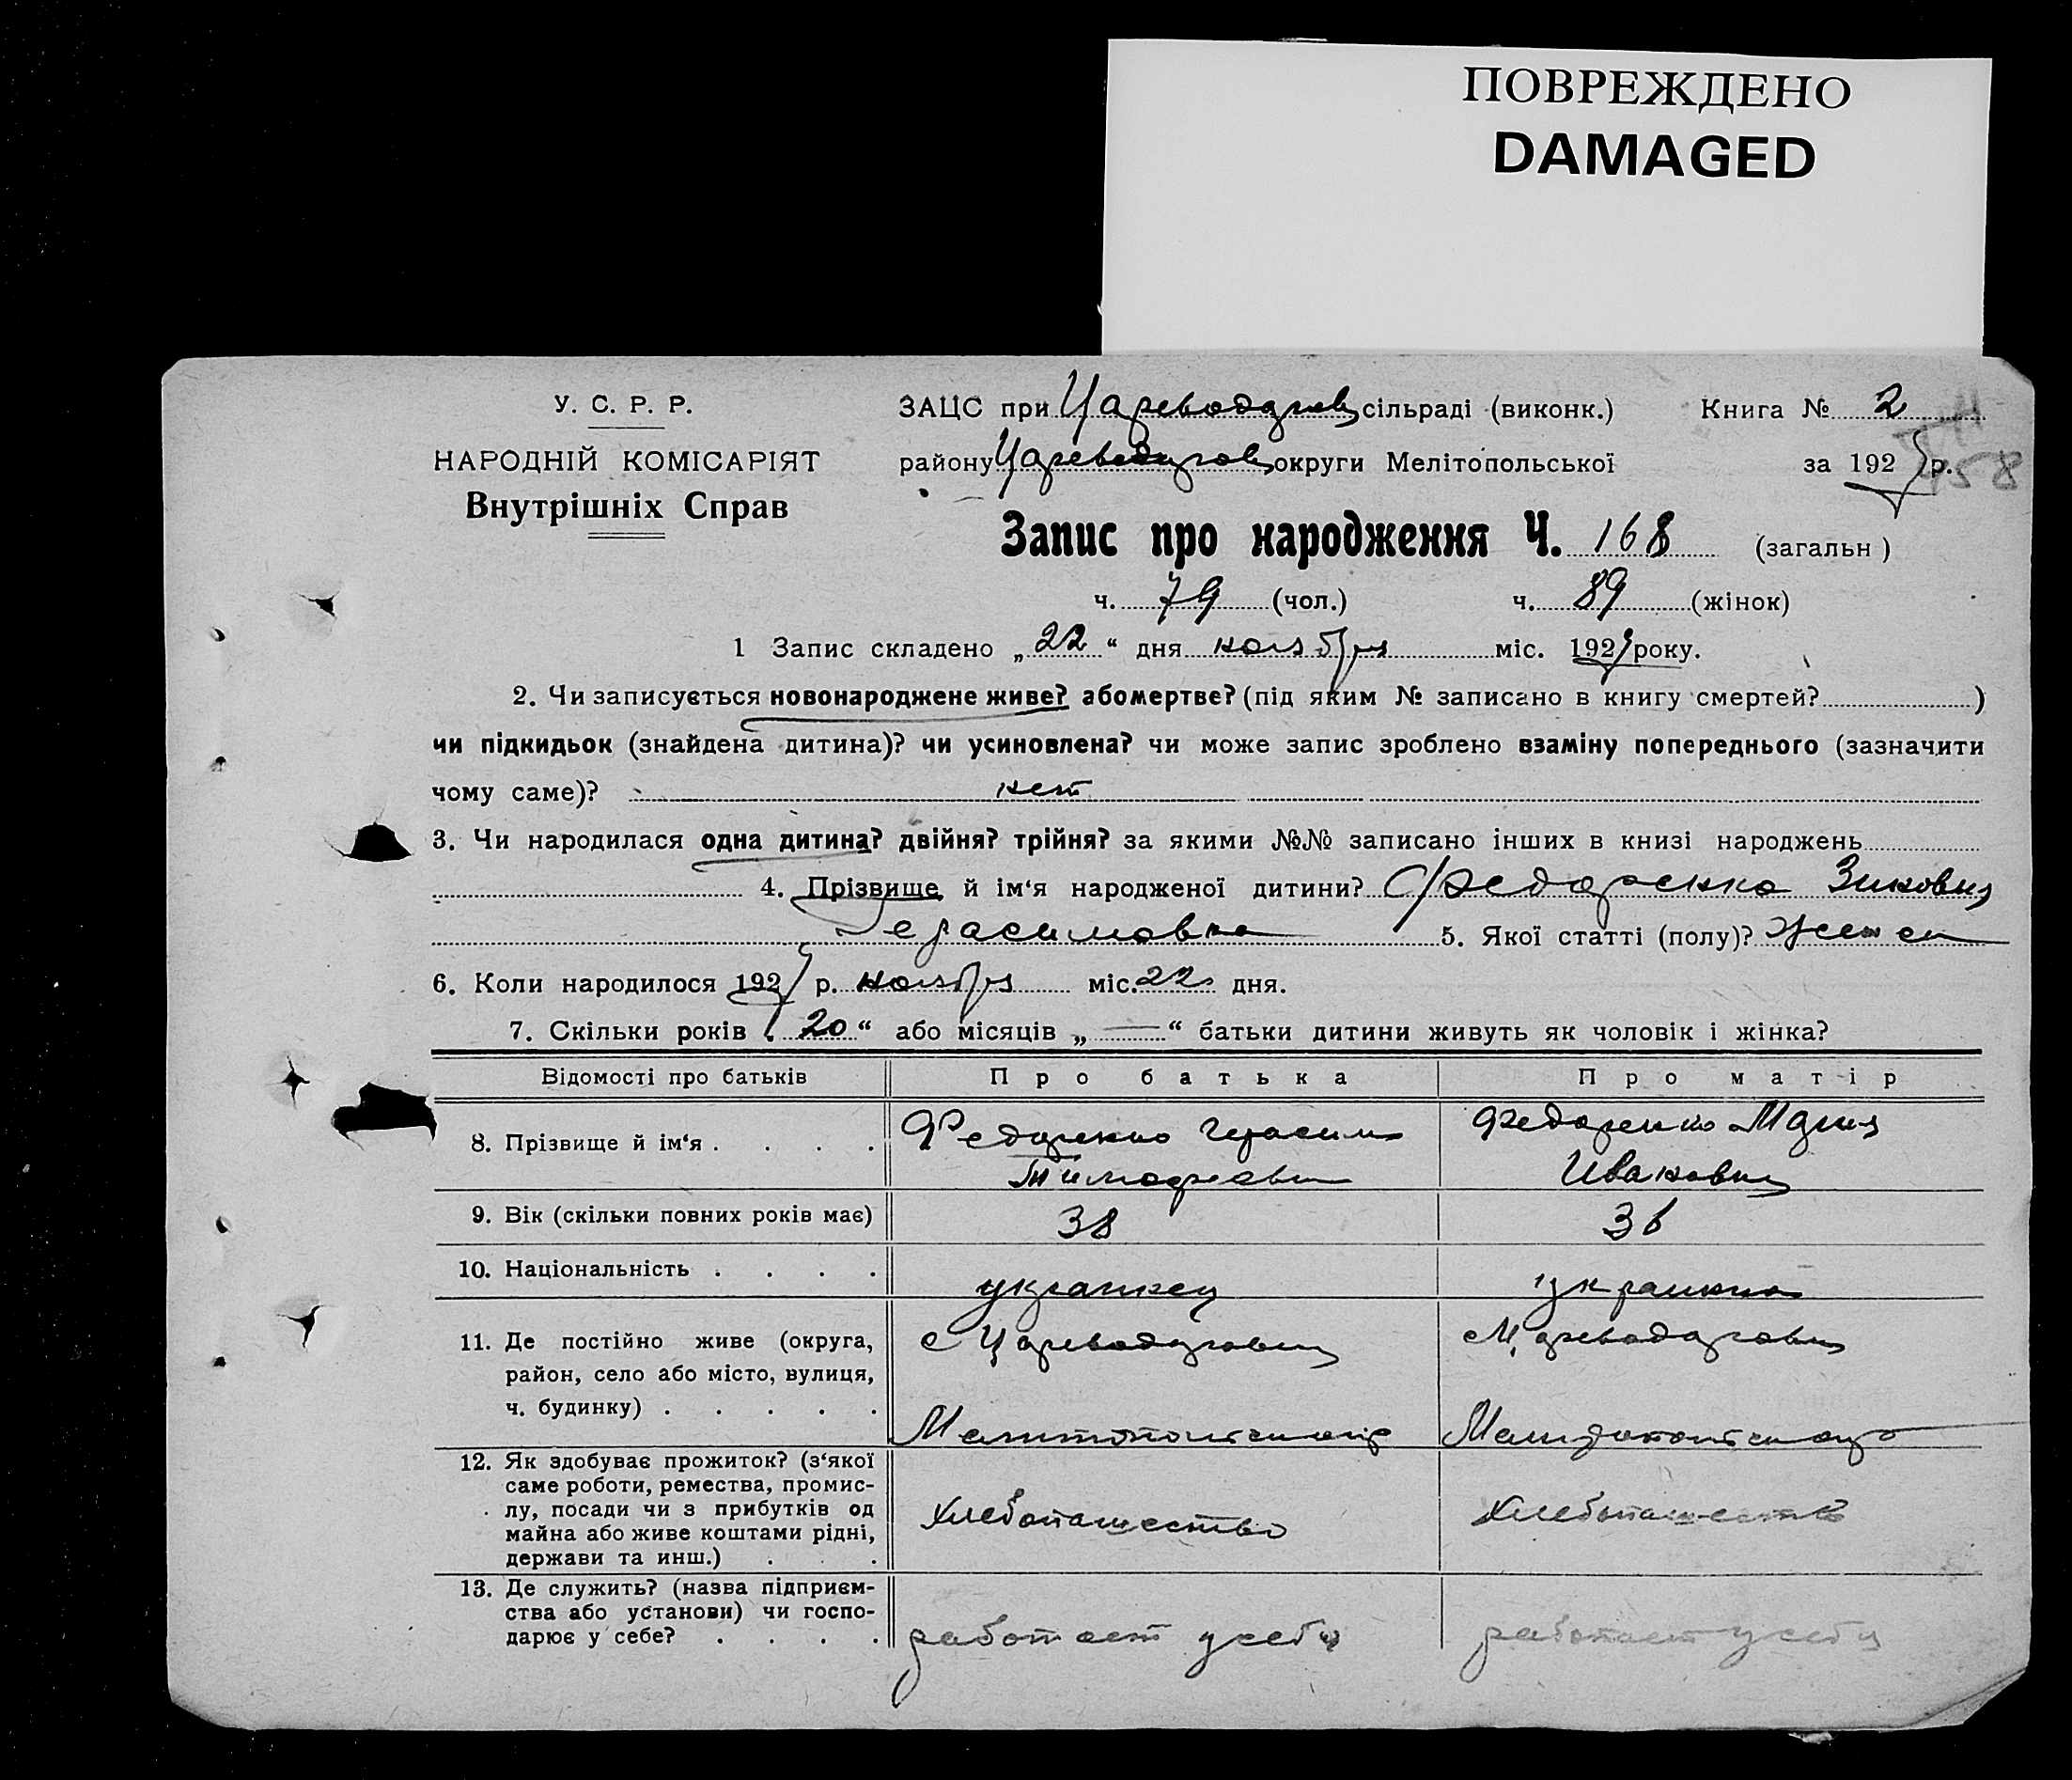 ПОВРЕЖДЕНО
DAMAGED
У. С. Р. Р.
НАРОДНІЙ КОМІСАРІЯТ
Внутрішніх Справ
ЗАЦС при сільраді (виконк.) Книга № 2
району округи Мелітопольської за 192 р.
Запис про народження Ч. 168 (загальн)
ч. 79 (чол.) ч. 89 (жінок)
1 Запис складено „22“ дня ноября міс. 192 року.
2. Чи записується новонароджене живе? або мертве? (під яким № записано в книгу смертей? )
чи підкидьок (знайдена дитина)? чи усиновлена? чи може запис зроблено взаміну попереднього (зазначити
чому саме)? нет
3. Чи народилася одна дитина? двійня? трійня? за якими №№ записано інших в книзі народжень
4. Прізвище й ім‘я народженої дитини? Федоренко Зиновия
Герасимовна 5. Якої статті (полу)?
6. Коли народилося 192 р. ноября міс. 22 дня.
7. Скільки років „20“ або місяців „—“ батьки дитини живуть як чоловік і жінка?
Відомості про батьків Про батька Про матір
8. Прізвище й ім‘я . . . . Федоренко Герасим Федоренко Мария
Ивановна
9. Вік (скільки повних років має) 38 36
10. Національність . . . . украинец украинка
11. Де постійно живе (округа,
район, село або місто, вулиця,
ч. будинку) . . . . .
12. Як здобуває прожиток? (з‘якої
саме роботи, ремества, промис-
лу, посади чи з прибутків од
майна або живе коштами рідні,
держави та инш.) . . .
хлебопашество хлебопашество
13. Де служить? (назва підприєм-
ства або установи) чи госпо-
дарює у себе? . . . .
работает у себя работает у себя